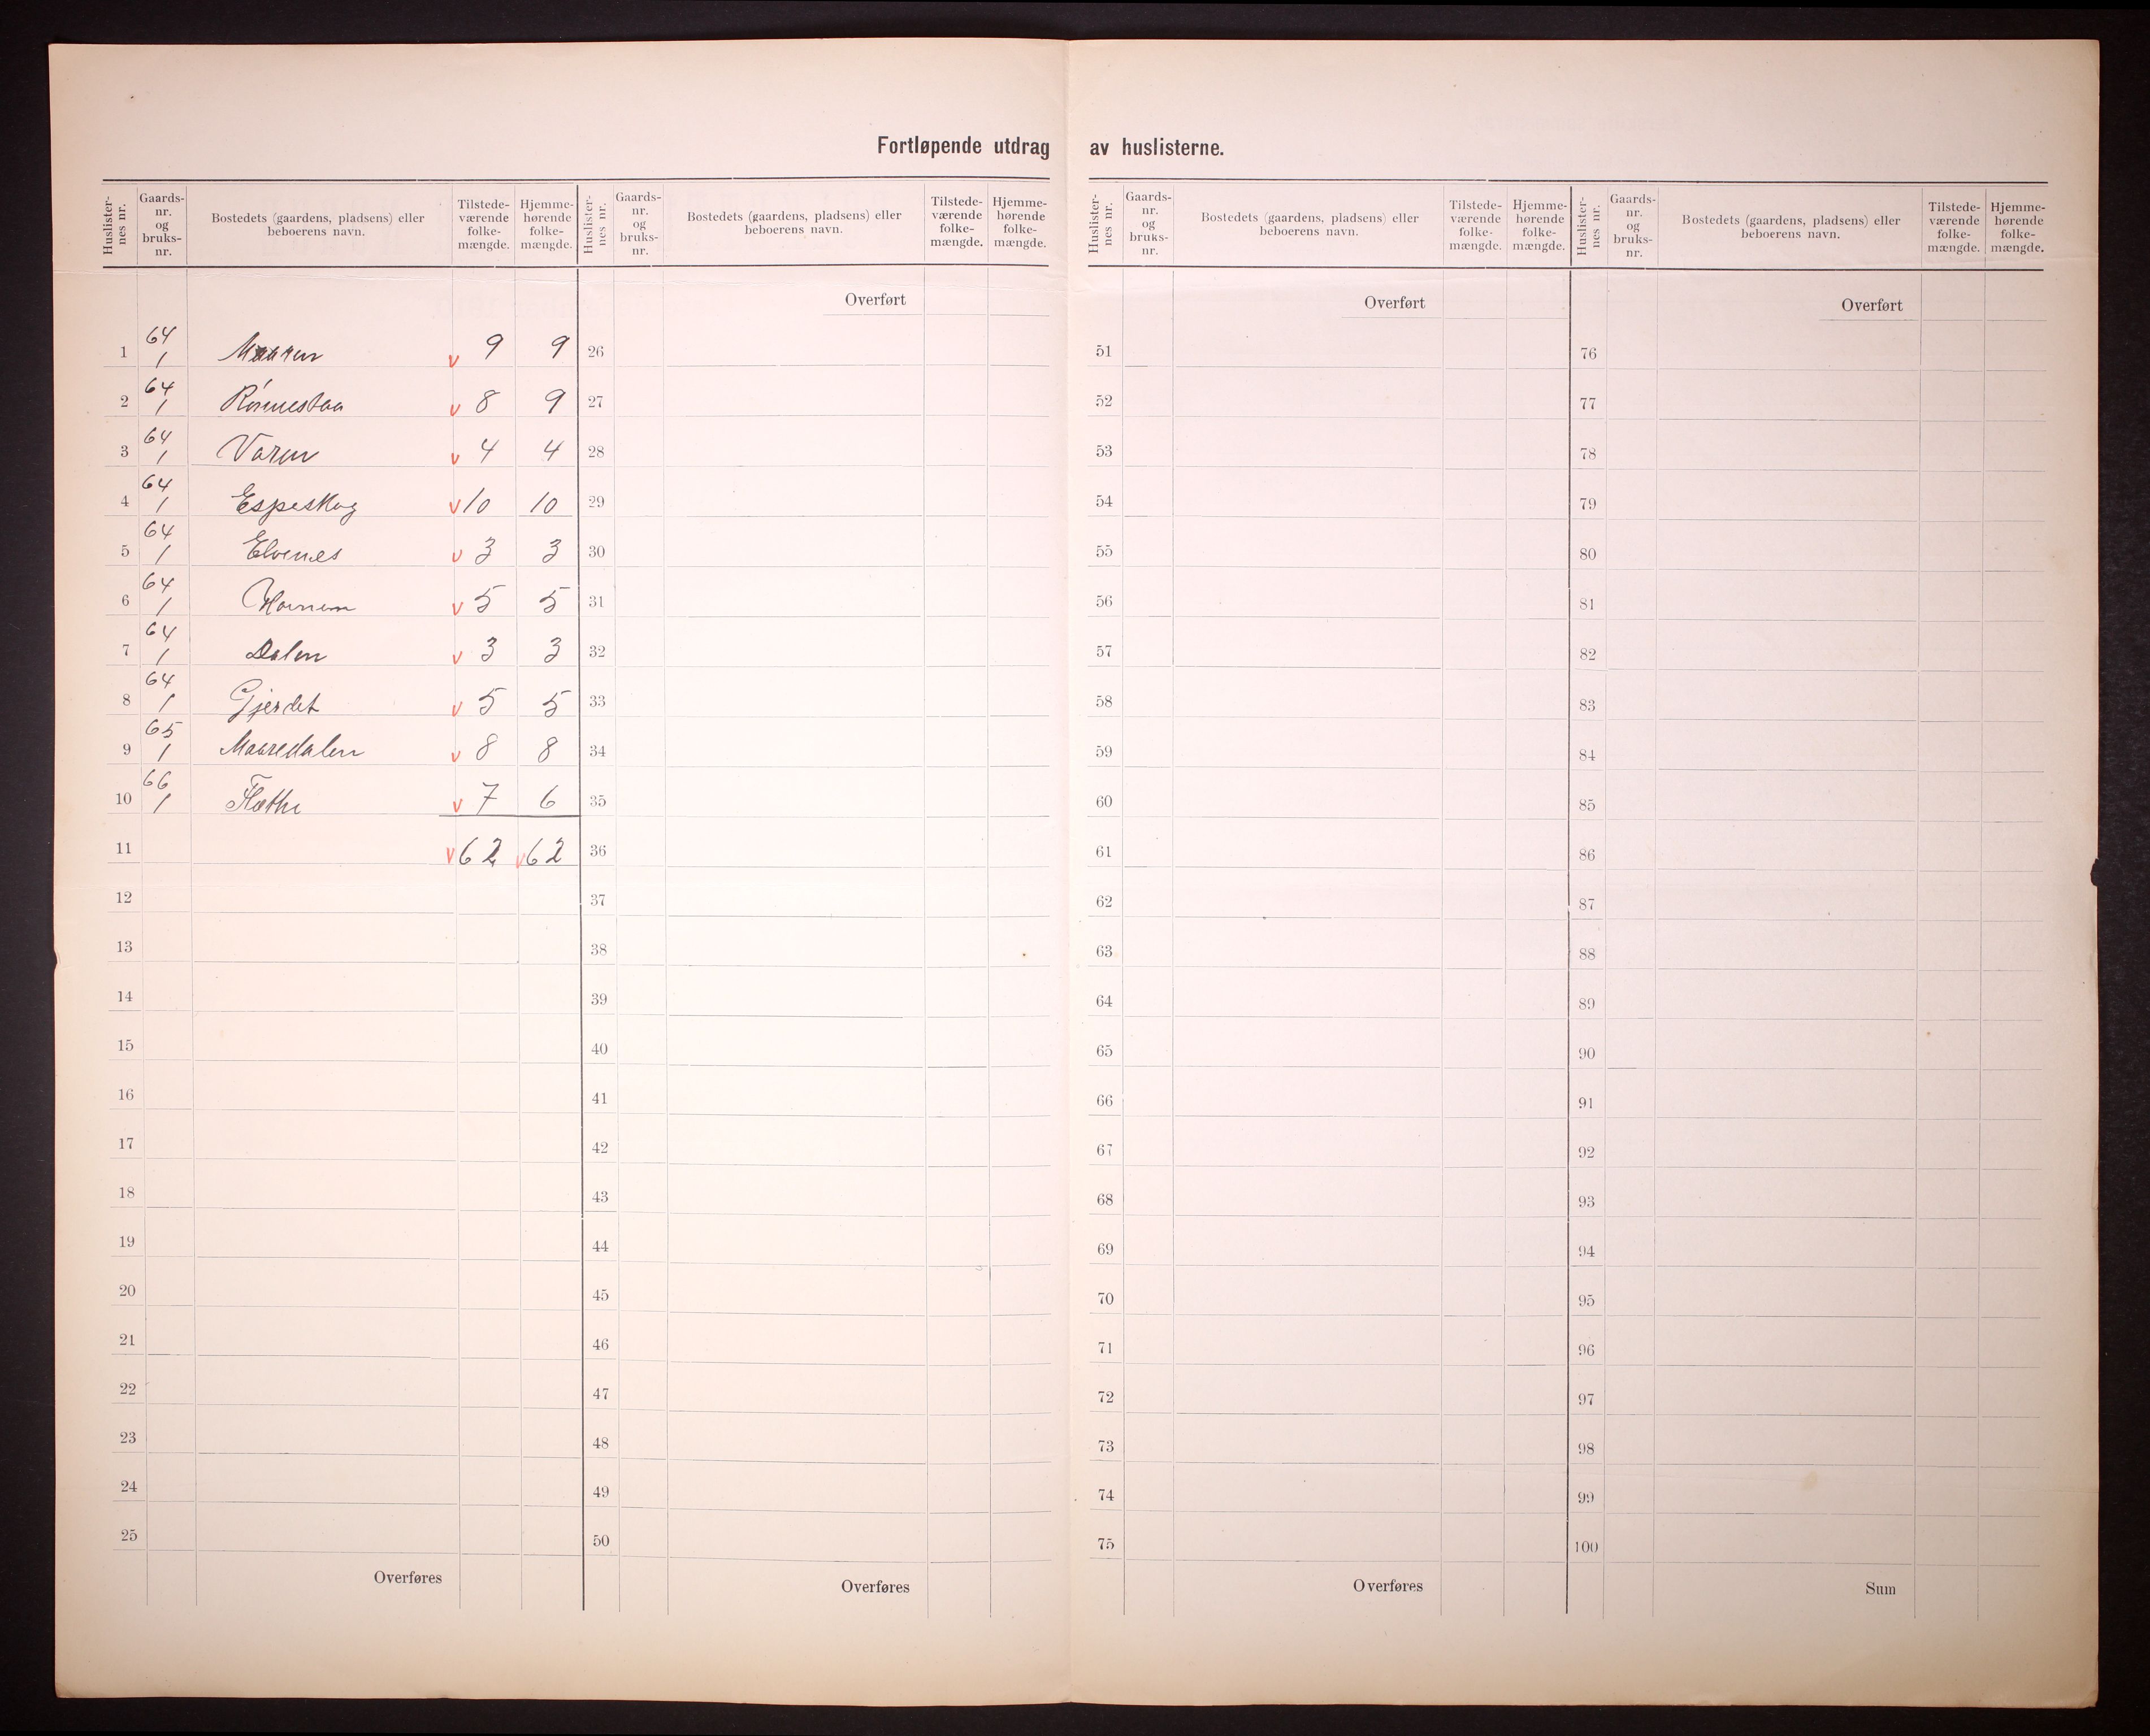 Fortløpende utdrag av huslisterne.
Huslister-nes nr. Gaards-nr. og bruks-nr. Bostedets (gaardens, pladsens) eller beboerens navn. Tilstede-værende folke-mængde. Hjemme-hørende folke-mængde. Huslister-nes nr. Gaards-nr. og bruks-nr. Bostedets (gaardens, pladsens) eller beboerens navn. Tilstede-værende folke-mængde. Hjemme-hørende folke-mængde. Huslister-nes nr. Gaards-nr. og bruks-nr. Bostedets (gaardens, pladsens) eller beboerens navn. Tilstede-værende folke-mængde. Hjemme-hørende folke-mængde. Huslister-nes nr. Gaards-nr. og bruks-nr. Bostedets (gaardens, pladsens) eller beboerens navn. Tilstede-værende folke-mængde. Hjemme-hørende folke-mængde.
Overført Overført Overført
1 64/1 Maaren v 9 9 26 51 76
2 64/1 Rónnestaa v 8 9 27 52 77
3 64/1 Varen v 4 4 28 53 78
4 64/1 Espeskog v 10 10 29 54 79
5 64/1 Elvenes v 3 3 30 55 80
6 64/1 v 5 5 31 56 81
7 64/1 Dalen v 3 3 32 57 82
8 64/1 Gjerdet v 5 5 33 58 83
9 65/1 Maaredalen v 8 8 34 59 84
10 66/1 Flæthe v 7 6 35 60 85
11 v 62 v 62 36 61 86
12 37 62 87
13 38 63 88
14 39 64 89
15 40 65 90
16 41 66 91
17 42 67 92
18 43 68 93
19 44 69 94
20 45 70 95
21 46 71 96
22 47 72 97
23 48 73 98
24 49 74 99
25 50 75 100
Overføres Overføres Overføres Sum